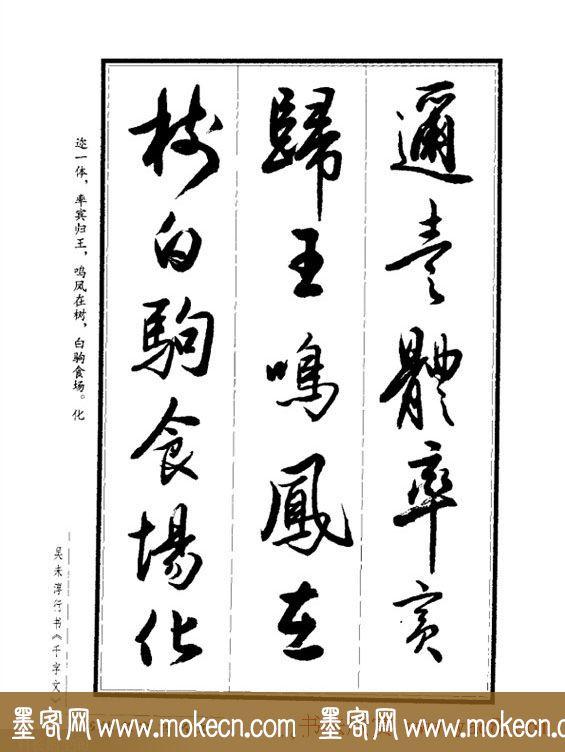 邇壹體率賓
歸王鳴鳳在
樹白駒食場化
迩一体，率宾归王，鸣凤在树，白驹食场。化
吴未淳行书《千字文》
墨客网 www.mokecn.com 墨客网 www.mokecn.com